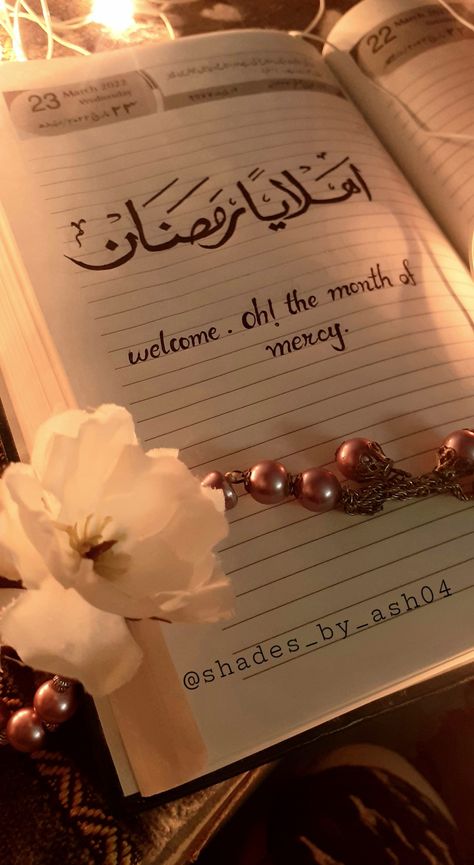 23 March 2022
Wednesday
22 March
اهلا يا رمضان
welcome. oh! the month of
mercy.
@shades_by_ash04